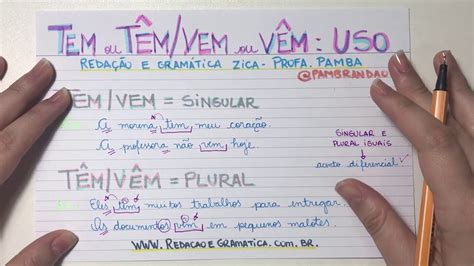 TEM OU TÊM/VEM OU VÊM: USO
REDAÇÃO E GRAMÁTICA ZICA - PROFA. PAMBA
@PAMBRANDAO
TEM/VEM = SINGULAR
A morena tem meu coração.
A professora não vem hoje.
SINGULAR E
PLURAL IGUAIS
acento diferencial
TÊM/VÊM = PLURAL
Eles têm muitos trabalhos para entregar.
Os documentos vêm em pequenos malotes.
WWW.REDACAOEGRAMATICA.COM.BR.